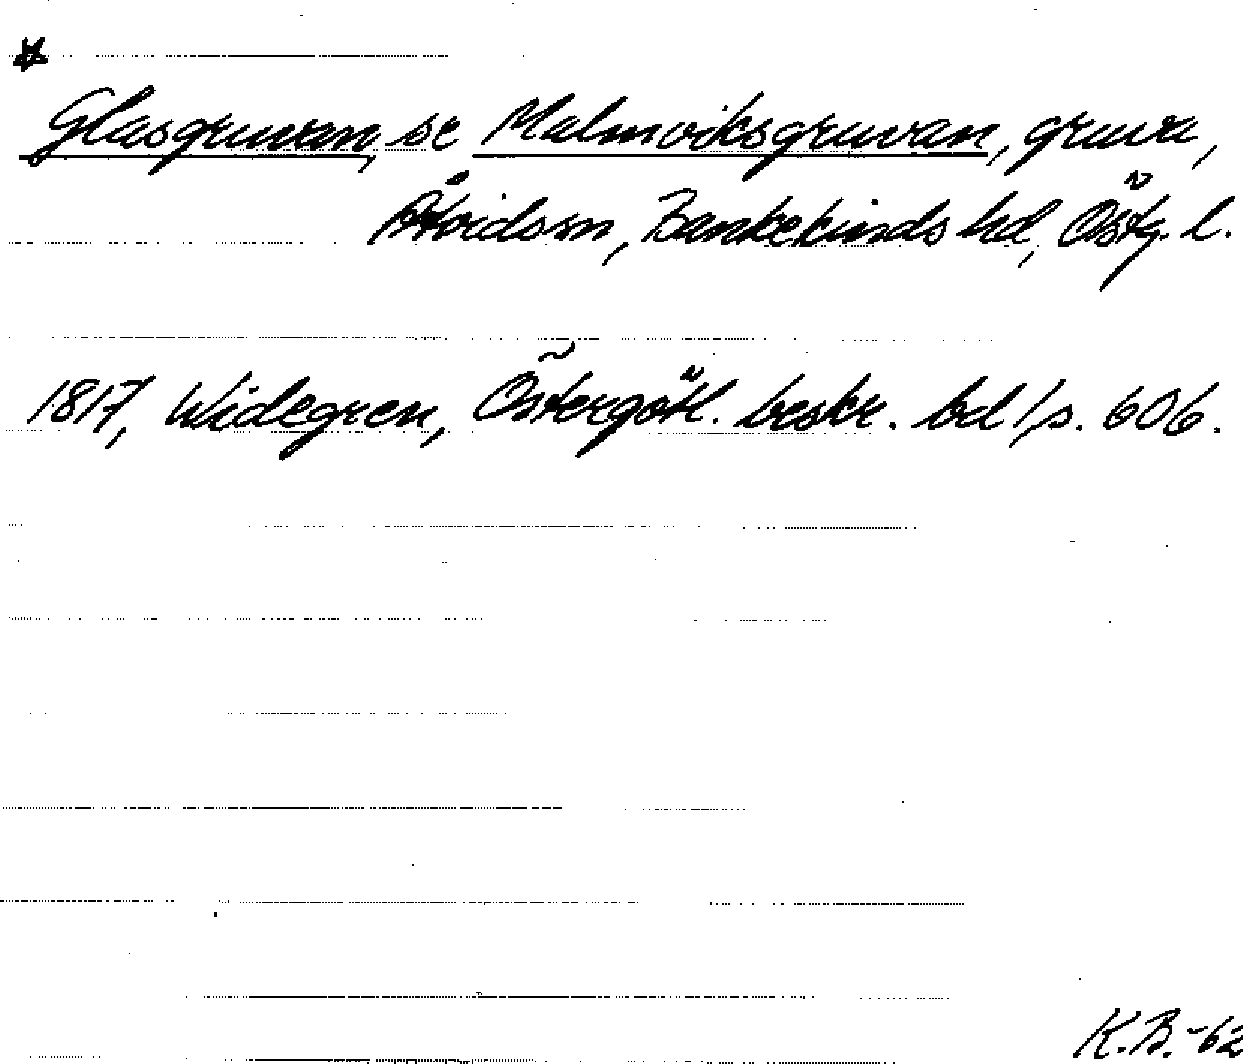 Glasgruvan, se Malmviksgruvan, gruva,
Åtvidsm, Bankekinds hd, Östg. l.
1817, Widegren, Östergötl. beskr. bd 1, s. 606.
K.B.-62